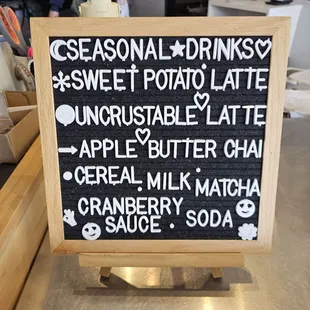 SEASONAL DRINKS
SWEET POTATO LATTE
UNCRUSTABLE LATTE
APPLE BUTTER CHAI
CEREAL MILK MATCHA
CRANBERRY
SAUCE SODA